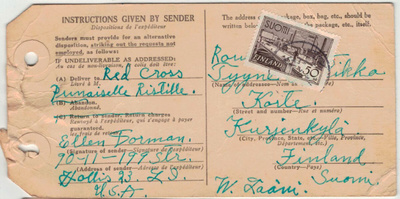 INSTRUCTIONS GIVEN BY SENDER
Dispositions de l'expéditeur
Senders must provide for an alternative
disposition, striking out the requests not
employed, as follows:
IF UNDELIVERABLE AS ADDRESSED:
Au cas de non-livraison,
(A) Deliver to Red Cross
Livré à M.
Punaiselle Ristille.
(B) Abandon.
Abandonné.
(C) Return to sender, Return charges
Renvoyé à l'expéditeur, qui s'engage à payer
guaranteed.
les frais de retour.
Ellen Forman.
(Signature of sender—Signature de l'expéditeur)
90-11-199 Str.
(Address of sender—Adresse de l'expéditeur)
Hollis L.I.
U.S.A.
The address on the package, box, bag, etc., should be
written below
package, etc., itself.
SUOMI
FINLAND
50
Tyyne
(Name of addressee—Nom et
Koite.
(Street and number—Rue et numéro)
Kurjenkylä
(City, Province, State, etc.—Ville, Province,
Département, etc.)
Finland
(Country—Pays)
Suomi
W. Lääni.